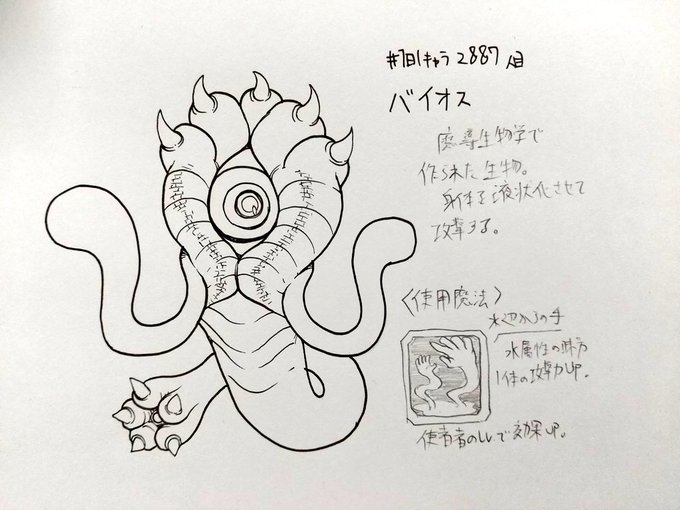 #1日1キャラ2887人目
バイオス
魔導生物学で
作られた生物。
身体を液状化させて
攻撃する。
〈使用魔法〉
水辺からの手
水属性の味方
1体の攻撃力UP。
使者者のLvで効果UP。